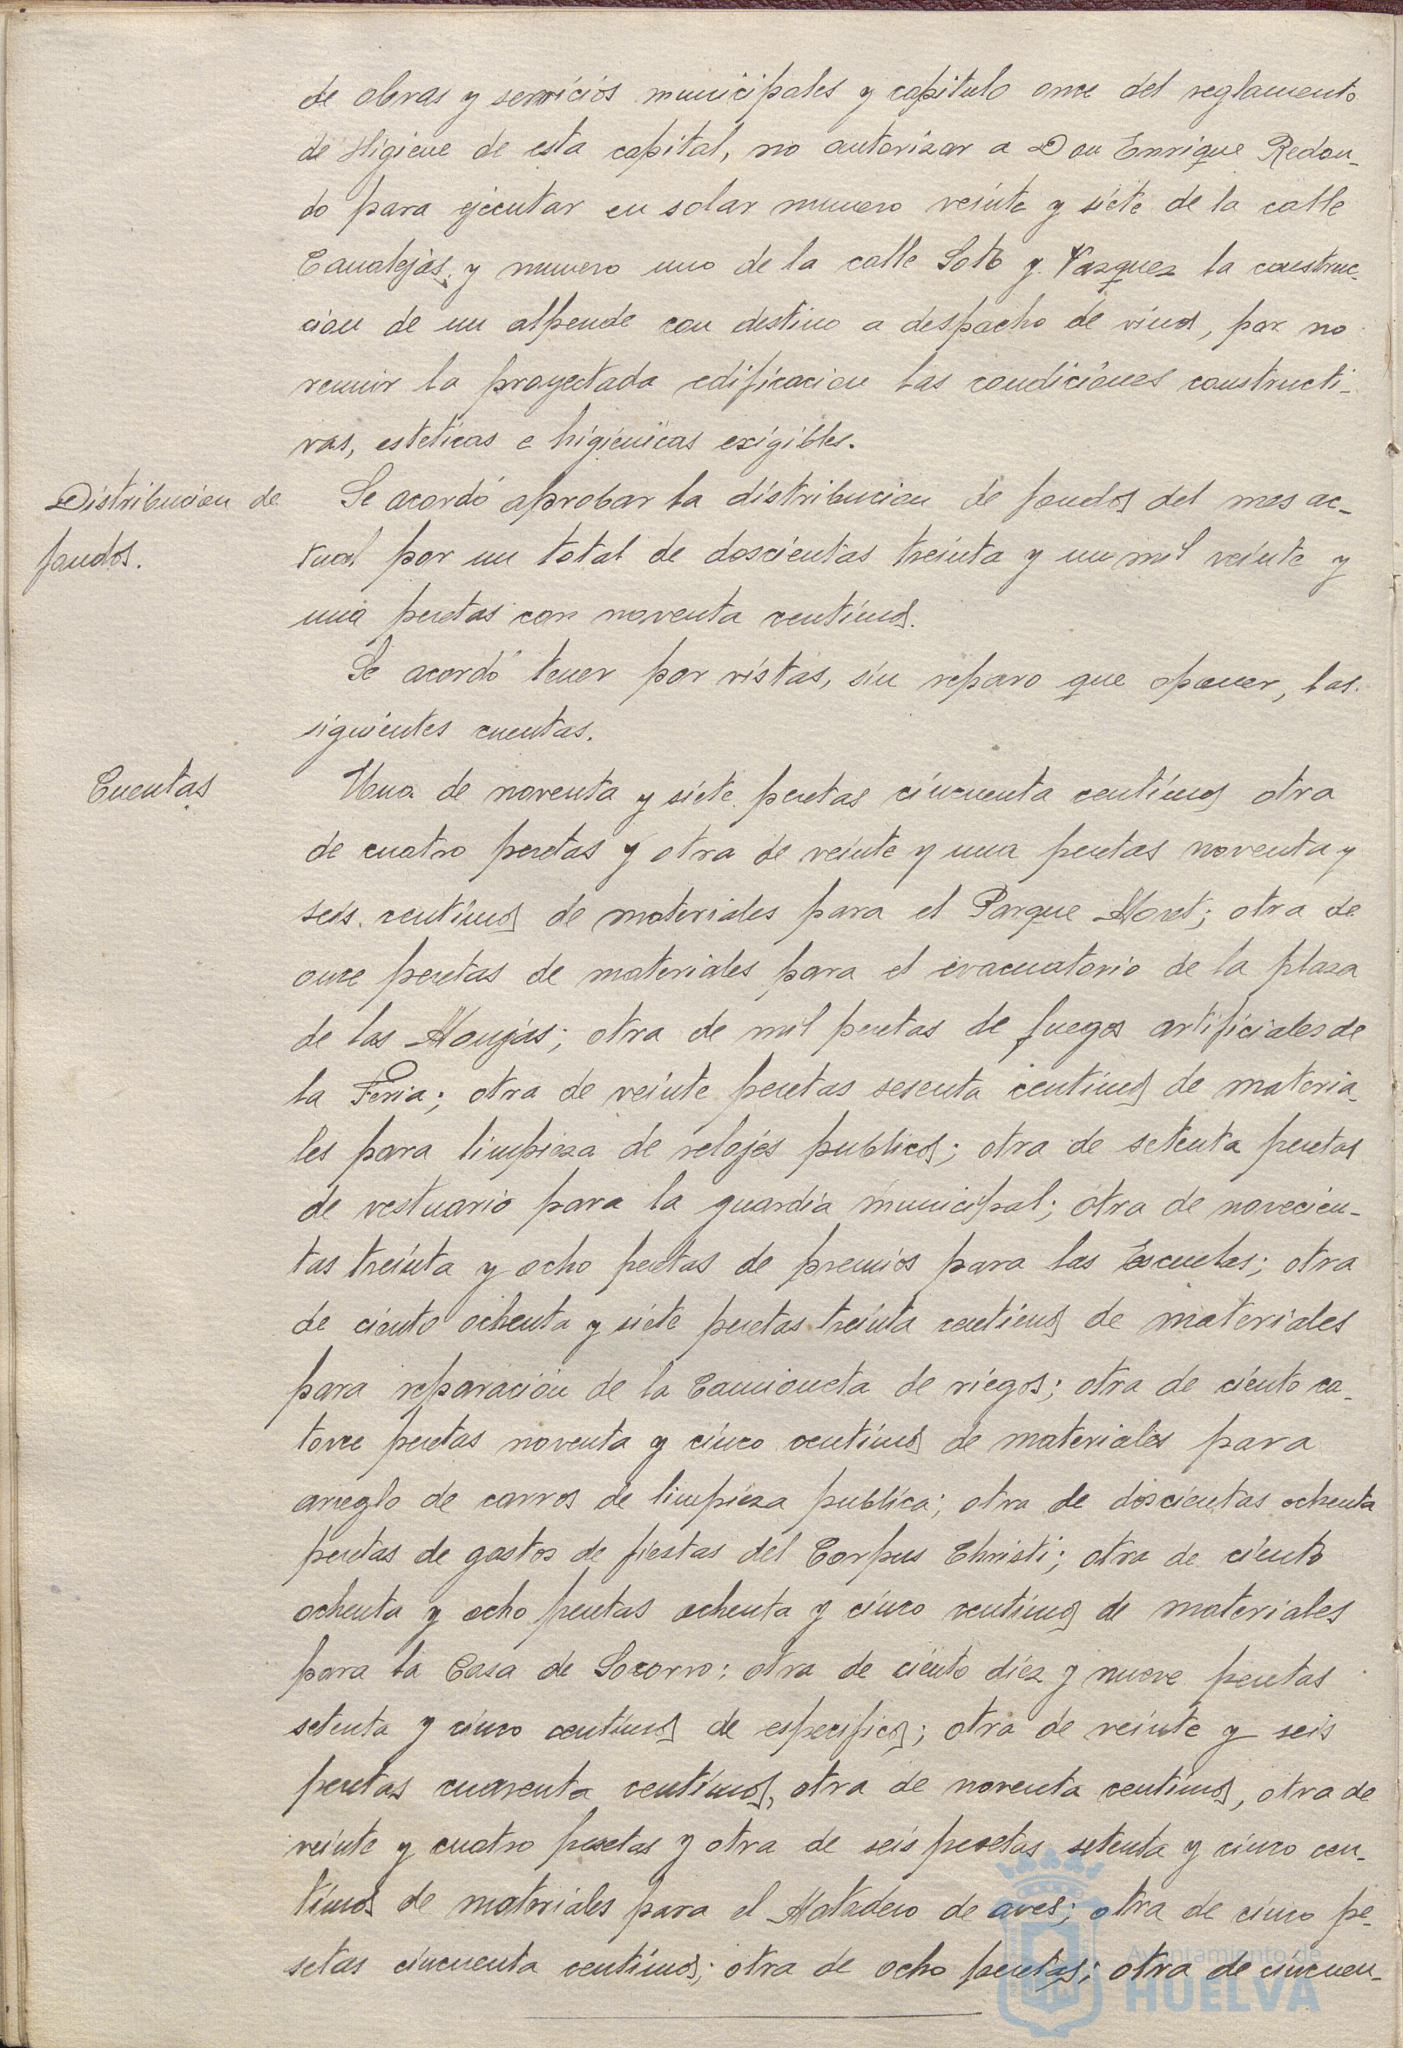 de obras y servicios municipales y capitulo once del reglamento
de Higiene de esta capital, no autorizar a Don Enrique Redon-
do para ejecutar en solar numero veinte y siete de la calle
Canalejas y numero uno de la calle Soto y Vazquez la construc-
cion de un alpende con destino a despacho de vinos, por no
reunir la proyectada edificacion las condiciones constructi-
vas, esteticas e higienicas exigibles.
Distribucion de
fondos.
Se acordó aprobar la distribucion de fondos del mes ac-
tual por un total de doscientas treinta y un mil veinte y
una pesetas con noventa centimos.
Se acordó tener por vistas, sin reparo que oponer, las
siguientes cuentas.
Cuentas
Una de noventa y siete pesetas cincuenta centimos otra
de cuatro pesetas y otra de veinte y una pesetas noventa y
seis centimos de materiales para el Parque Moret; otra de
once pesetas de materiales para el evacuatorio de la plaza
de las Monjas; otra de mil pesetas de fuegos artificiales de
la Feria; otra de veinte pesetas sesenta centimos de materia-
les para limpieza de relojes publicos; otra de setenta pesetas
de vestuario para la guardia municipal; otra de novecien-
tas treinta y ocho pesetas de premios para las Escuelas; otra
de ciento ochenta y siete pesetas treinta centimos de materiales
para reparacion de la Camioneta de riegos; otra de ciento ca-
torce pesetas noventa y cinco centimos de materiales para
arreglo de carros de limpieza publica; otra de doscientas ochenta
pesetas de gastos de fiestas del Corpus Christi; otra de ciento
ochenta y ocho pesetas ochenta y cinco centimos de materiales
para la Casa de Socorro; otra de ciento diez y nueve pesetas
setenta y cinco centimos de especificos; otra de veinte y seis
pesetas cuarenta centimos, otra de noventa centimos, otra de
veinte y cuatro pesetas y otra de seis pesetas setenta y cinco cen-
timos de materiales para el Matadero de aves; otra de cinco pe-
setas cincuenta centimos; otra de ocho pesetas; otra de cincuen-
Ayuntamiento de
HUELVA